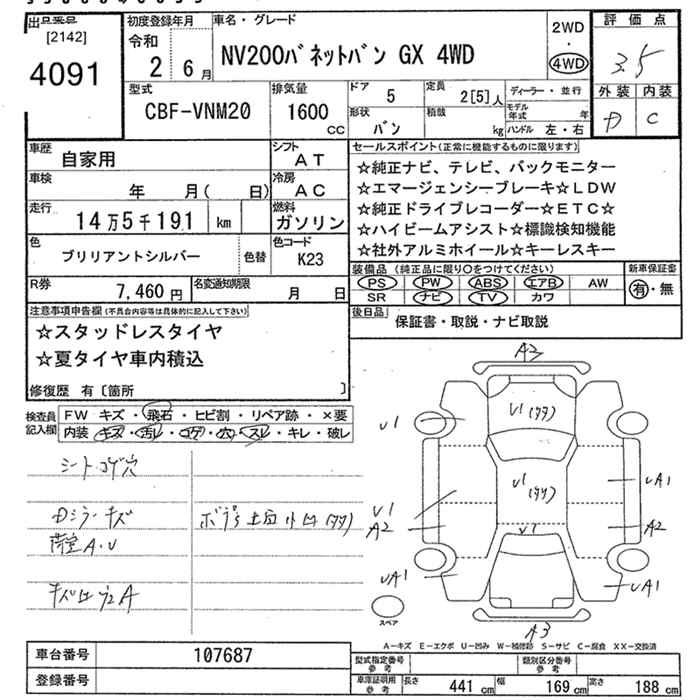 出品番号
[2142]
4091
初度登録年月
令和
2 6月
車名・グレード
NV200バネットバン GX 4WD
2WD
・
4WD
評価点
3.5
外装 内装
D C
型式
CBF-VNM20
排気量
1600
cc
ドア
5
定員
2[5]人
形状
バン
積載
kg
ディーラー・並行
モデル年式 年
ハンドル 左・右
車歴
自家用
シフト
AT
車検
年 月( 日)
冷房
AC
走行
14万5千191 km
燃料
ガソリン
色
ブリリアントシルバー
色替
色コード
K23
R券
7,460円
名変通知期限
月 日
セールスポイント(正常に機能するものに限ります)
☆純正ナビ、テレビ、バックモニター
☆エマージェンシーブレーキ☆LDW
☆純正ドライブレコーダー☆ETC☆
☆ハイビームアシスト☆標識検知機能
☆社外アルミホイール☆キーレスキー
装備品 (純正品に限り○をつけてください)
新車保証書
PS PW ABS エアB AW
SR ナビ TV カワ
有・無
後日品
保証書・取説・ナビ取説
注意事項申告欄(不具合内容等は具体的に記入して下さい)
☆スタッドレスタイヤ
☆夏タイヤ車内積込
修復歴 有〔箇所 〕
検査員記入欄
FW キズ・飛石・ヒビ割・リペア跡・×要
内装 キズ・汚レ・コゲ・穴・スレ・キレ・破レ
シートコゲ穴
Dミラーキズ
荷室A・U
A3
U1
U1
U1
A2
UA1
UA1
A2
UA1
A3
スペア
A-キズ E-エクボ U-凹み W-補修跡 S-サビ C-腐食 XX-交換済
車台番号
107687
登録番号
型式指定番号
参考
類別区分番号
参考
車庫証明用
参考
長さ 441 cm 幅 169 cm 高さ 188 cm